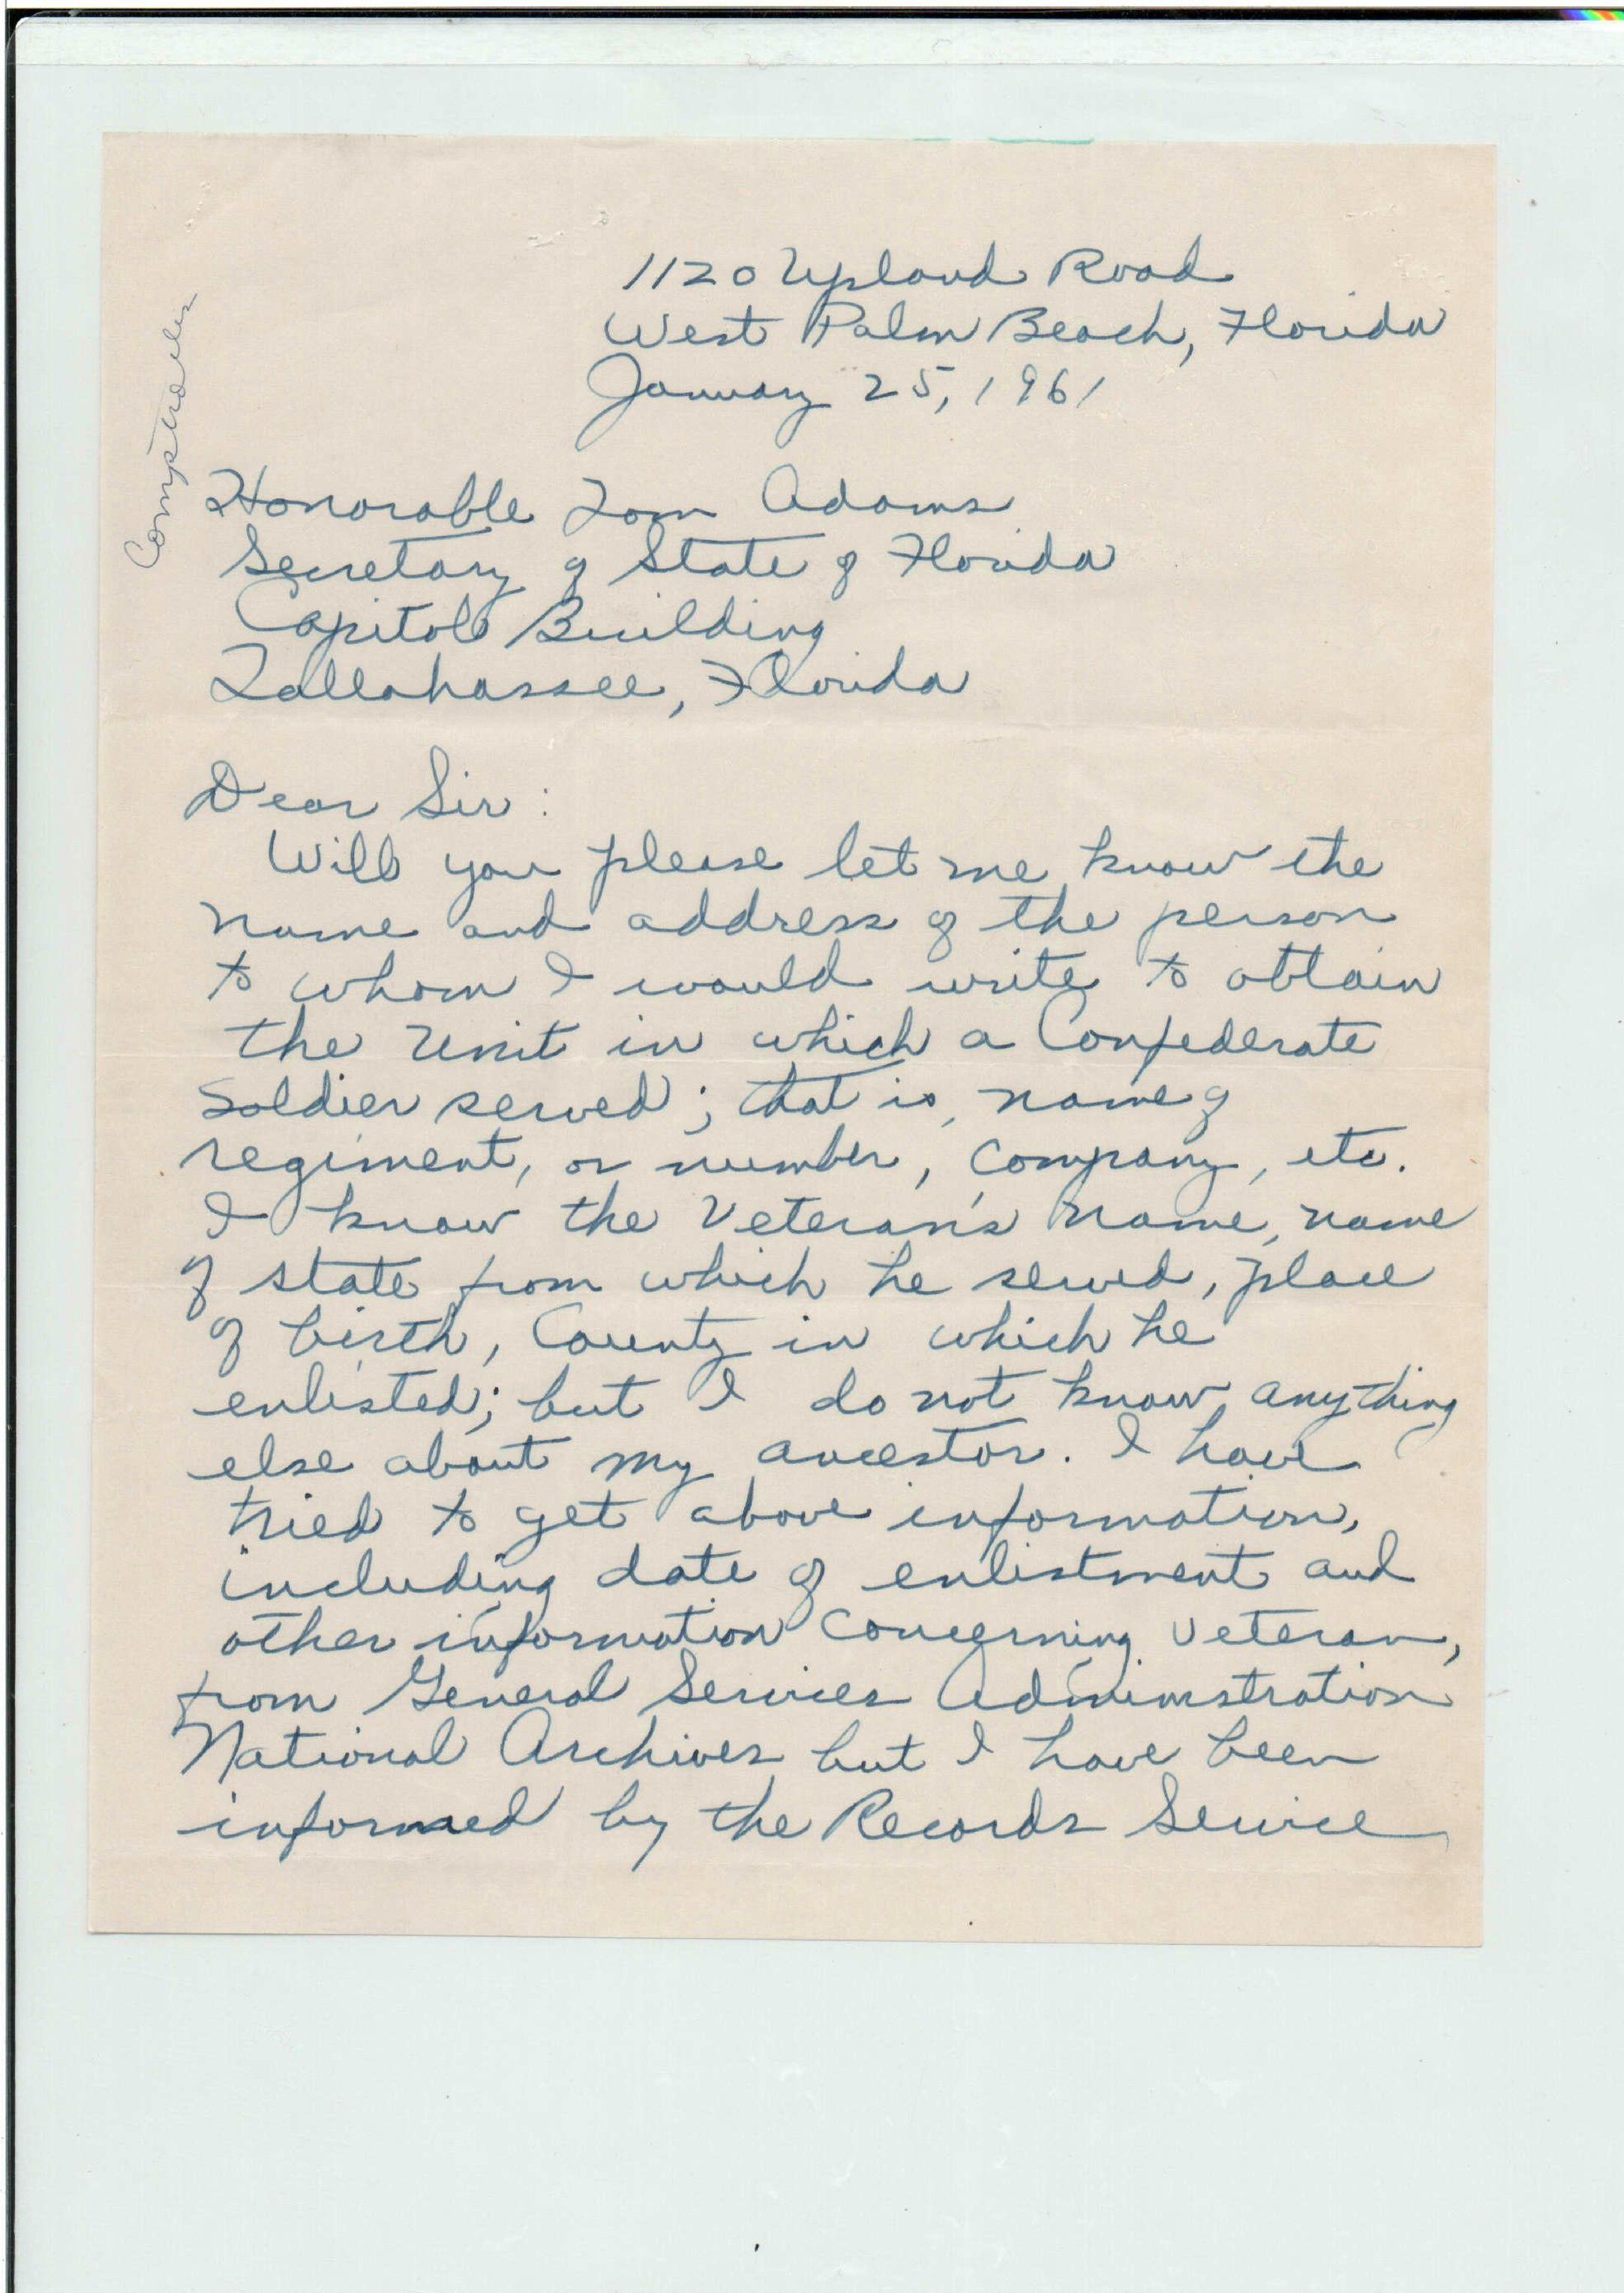 1120 Upland Road
West Palm Beach, Florida
January 25, 1961
Comptroller
Honorable Tom Adams
Secretary of State of Florida
Capitol Building
Tallahassee, Florida
Dear Sir:
Will you please let me know the
name and address of the person
to whom I would write to obtain
the Unit in which a Confederate
Soldier served; that is, name of
regiment, or number, Company, etc.
I know the Veteran's name, name
of state from which he served, place
of birth, County in which he
enlisted; but I do not know anything
else about my ancestor. I have
tried to get above information,
including date of enlistment and
other information concerning veteran,
from General Services Administration
National Archives but I have been
informed by the Records Service